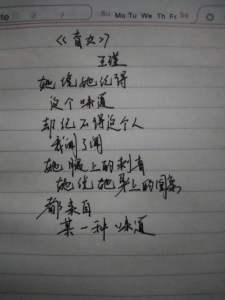 Su Mo Tu We Th Fr Sa
《盲女》
王瑾
她说她记得
这个味道
却记不得这个人
我闻了闻
她腿上的刺青
她说她上的图案
都来自
某一种味道